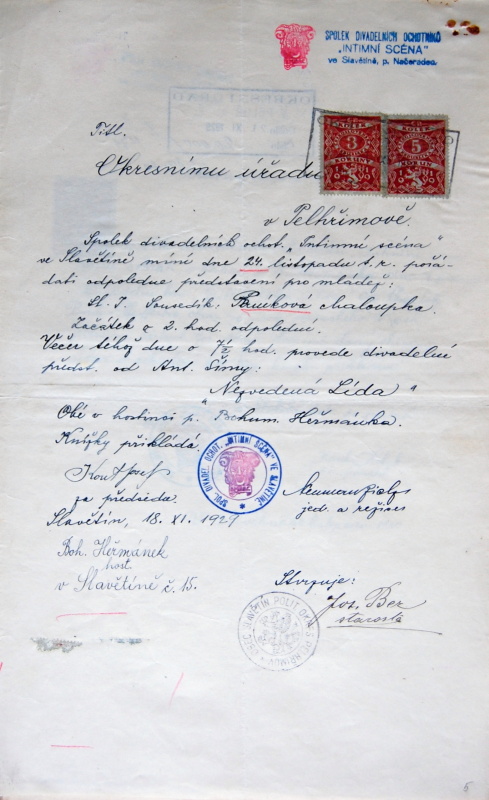 SPOLEK DIVADELNÍCH OCHOTNÍKŮ
„INTIMNÍ SCÉNA”
ve Slavětíně, p. Načeradec.
KOLEK
3
KORUNY
KOLEK
5
KORUN
Titl.
Okresnímu úřadu
v Pelhřimově.
Spolek divadelních ochot. „Intimní scéna”
ve Slavětíně míní dne 24. listopadu t. r. pořá-
dati odpoledne představení pro mládež:
Perníková chaloupka.
Začátek o 2. hod. odpolední.
Večer téhož dne o 7½ hod. provede divadelní
předst. od Ant. Šímy:
„Nezvedená Lída”
Obé v hostinci p. Bohum. Heřmánka.
Knížky přikládá.
SPOL. DIVADEL. OCHOT. „INTIMNÍ SCÉNA” VE SLAVĚTÍNĚ
Josef
za předsedu.
jed. a režisér
Slavětín, 18. XI. 1927
Boh. Heřmánek
host
v Slavětíně č. 15.
Stvrzuje:
Jos. Ber
starosta